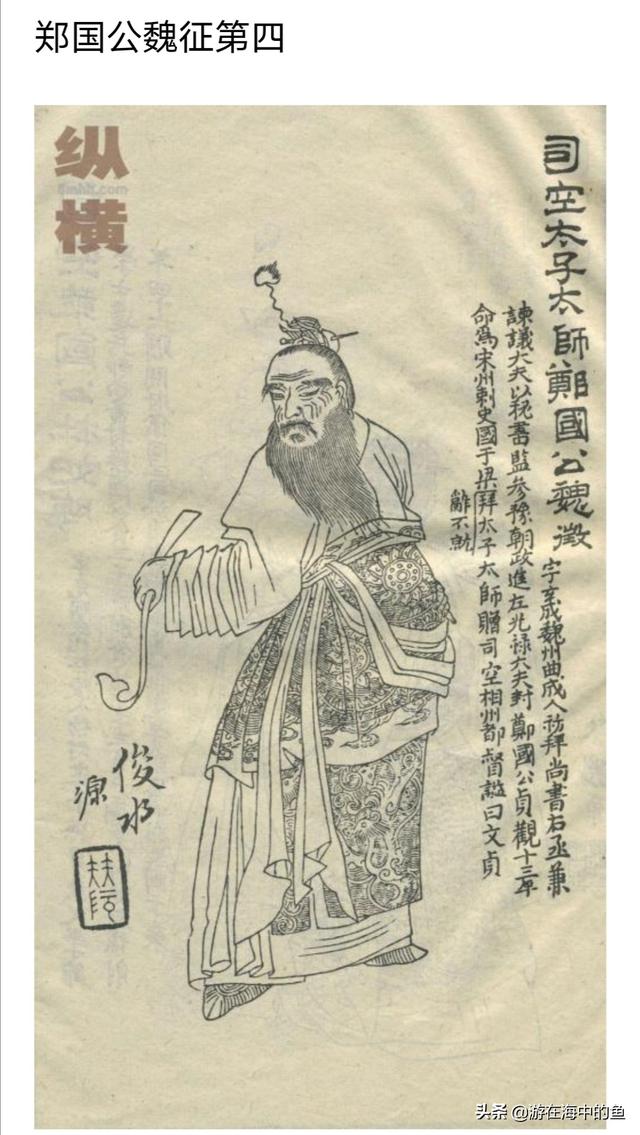 郑国公魏征第四
纵横
司空太子太師鄭國公魏徵
字玄成魏州曲成人初拜尚書右丞兼
諫議大夫以秘書監參豫朝政進左光祿大夫封鄭國公貞觀十三年
命爲宋州刺史國于梁拜太子太師贈司空相州都督諡曰文貞
辭不就
俊水
源
头条 @游在海中的鱼